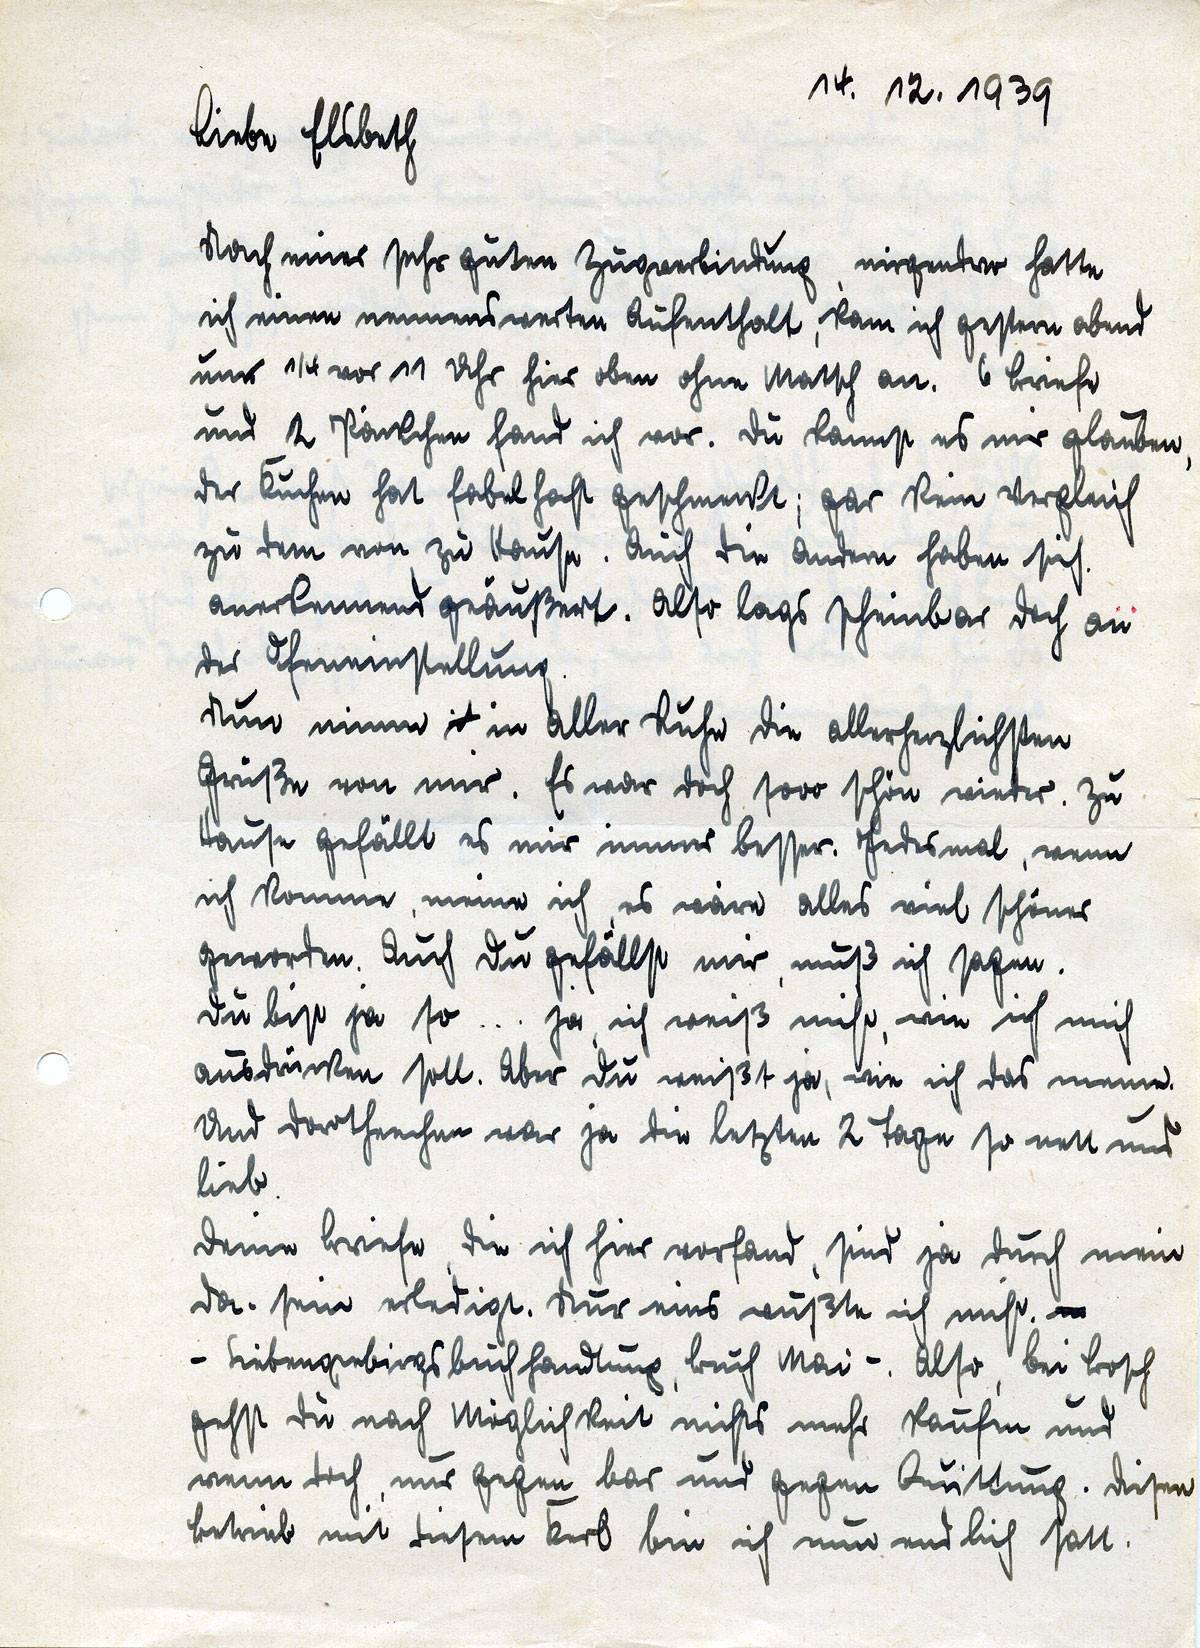 14. 12. 1939
Liebe Elsbeth
Nach einer sehr guten Zugverbindung, nirgendwo hatte
ich einen nennenswerten Aufenthalt, kam ich gestern abend
um 1/4 vor 11 Uhr hier oben ohne Matsch an. 6 Briefe
und 2 Päckchen fand ich vor. Du kannst es mir glauben,
der Kuchen hat fabelhaft geschmeckt; gar kein Vergleich
zu dem von zu Hause. Auch die Andern haben sich
anerkennend geäußert. Also lags scheinbar doch an
der Ofeneinstellung.
Nun nimm in aller Ruhe die allerherzlichsten
Grüße von mir. Es war doch sooo schön wieder. Zu
Hause gefällt es mir immer besser. Jedesmal, wenn
ich komme, meine ich, es wäre alles viel schöner
geworden. Auch Du gefällst mir, muß ich sagen.
Du bist ja so .... ja, ich weiß nicht, wie ich mich
ausdrücken soll. Aber Du weißt ja, wie ich das meine.
Und Dorotheechen war ja die letzten 2 Tage so nett und
lieb.
Deine Briefe, die ich hier vorfand, sind ja durch mein
Da-sein erledigt. Nur eins wußte ich nicht.
- Siebengebirgsbuchhandlung, Buch Mai -. Also, bei Bosch
gehst Du nach Möglichkeit nichts mehr kaufen und
wenn doch, nur gegen bar und gegen Quittung. Diesen
Betrieb mit diesem Kerl bin ich nun endlich satt.